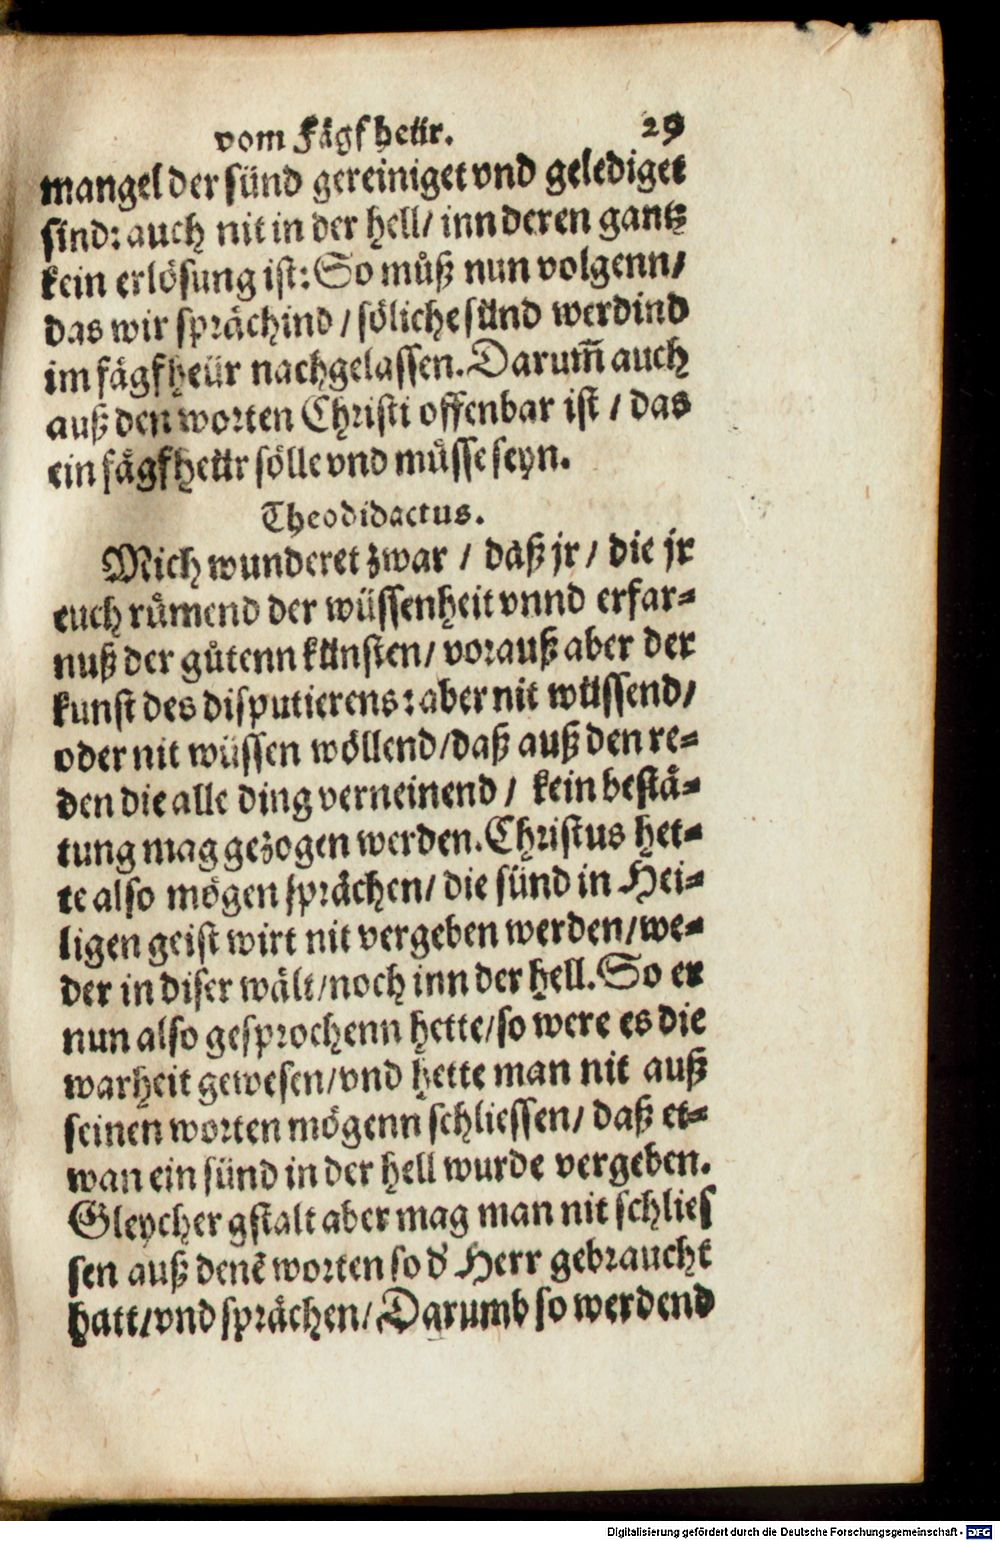 vom Fägfheür. 29
mangel der sünd gereiniget vnd gelediget
sind: auch nit in der hell/ inn deren gantz
kein erlösung ist: So müß nun volgenn/
das wir sprächind / söliche sünd werdind
im fägfheür nachgelassen. Darum̃ auch
auß den worten Christi offenbar ist / das
ein fägfheür sölle vnd müsse seyn.
Theodidactus.
Mich wunderet zwar / daß jr / die jr
euch růmend der wüssenheit vnnd erfar-
nuß der gůtenn künsten/ vorauß aber der
kunst des disputierens: aber nit wüssend/
oder nit wüssen wöllend/ daß auß den re-
den die alle ding verneinend / kein bestä-
tung mag gezogen werden. Christus het-
te also mögen sprächen/ die sünd in Hei-
ligen geist wirt nit vergeben werden/ we-
der in diser wält/ noch inn der hell. So er
nun also gesprochenn hette/ so were es die
warheit gewesen/ vnd hette man nit auß
seinen worten mögenn schliessen/ daß et-
wan ein sünd in der hell wurde vergeben.
Gleycher gstalt aber mag man nit schlies
sen auß denẽ worten so d' Herr gebraucht
hatt/ vnd sprächen/ Darumb so werdend
Digitalisierung gefördert durch die Deutsche Forschungsgemeinschaft - DFG